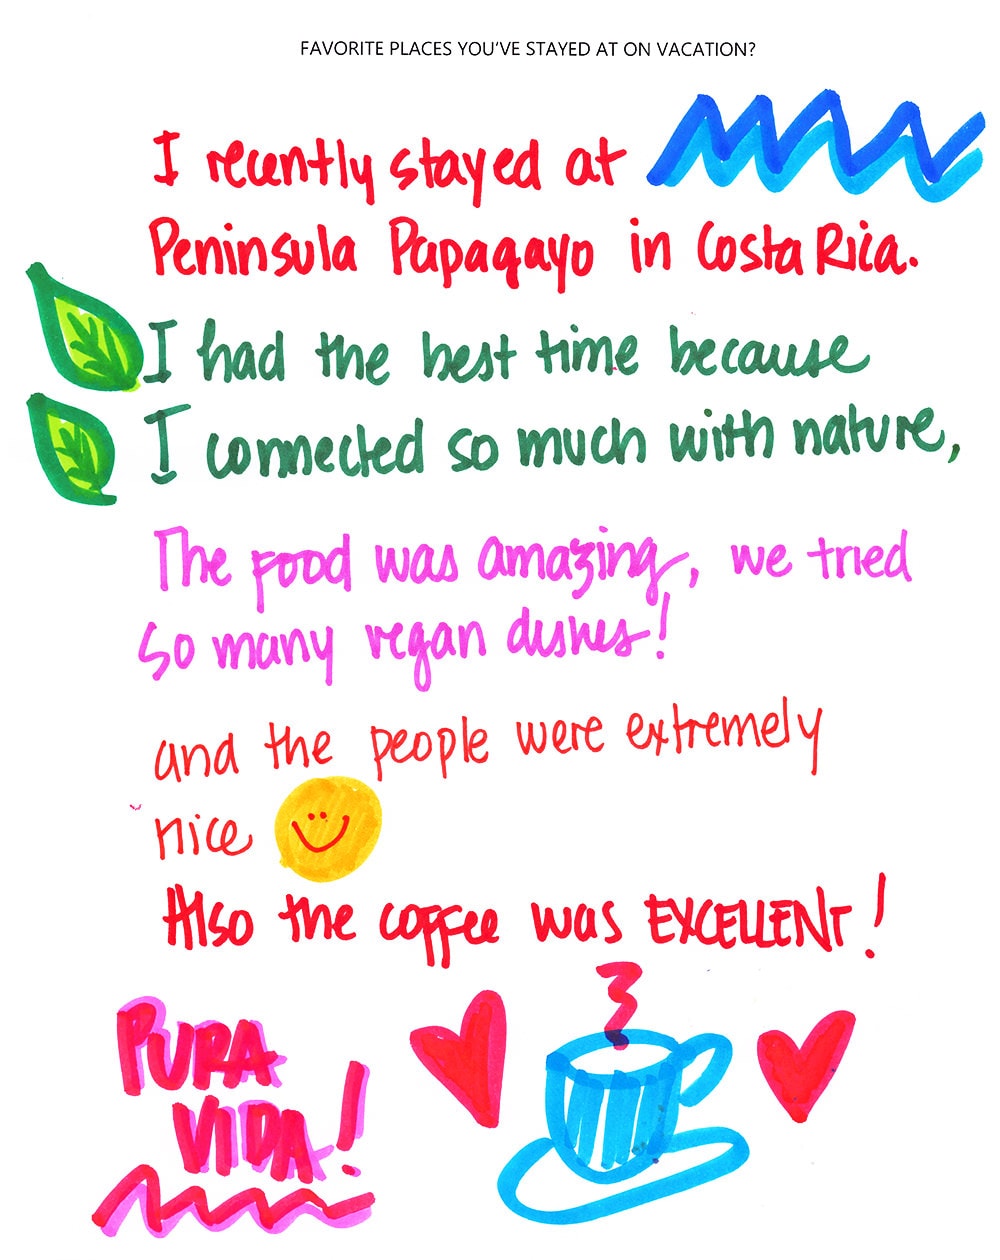 FAVORITE PLACES YOU'VE STAYED AT ON VACATION?
I recently stayed at
Peninsula Papagayo in Costa Rica.
I had the best time because
I connected so much with nature,
The food was amazing, we tried
so many vegan dishes!
and the people were extremely
nice
Also the coffee was EXCELLENT!
PURA
VIDA!